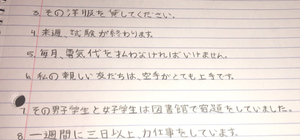 3. その洋服を貸してください。
4. 来週、試験が終わります。
5. 毎月、電気代を払わなければいけません。
6. 私の親しい友だちは、空手がとても上手です。
7. その男子学生と女子学生は図書館で宿題をしていました。
8. 一週間に三日以上、力仕事をしています。